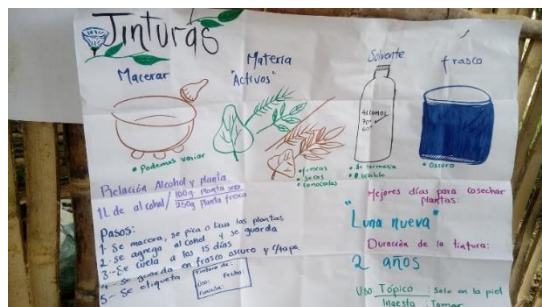 Tinturas
Macerar
Materia
"Activos"
Solvente
frasco
ALCOHOL
70°
60°
• Podemos variar
• frescas
• Secas
• conocidas
• de farmacia
• bebible
• Oscuro
Relación Alcohol y planta
1L de alcohol / 100g Planta seca
250g Planta fresca
Pasos:
1- Se macera, se pica o licua las plantas
2- Se agrega alcohol y se guarda
3- Se cuela a los 15 días
4- Se guarda en frasco oscuro y c/tapa
5- Se etiqueta
Tintura de:
Uso: Fecha:
Mejores días para cosechar
plantas:
"Luna nueva"
Duración de la tintura:
2 años
Uso: Tópico: Solo en la piel
Ingesta: Tomar